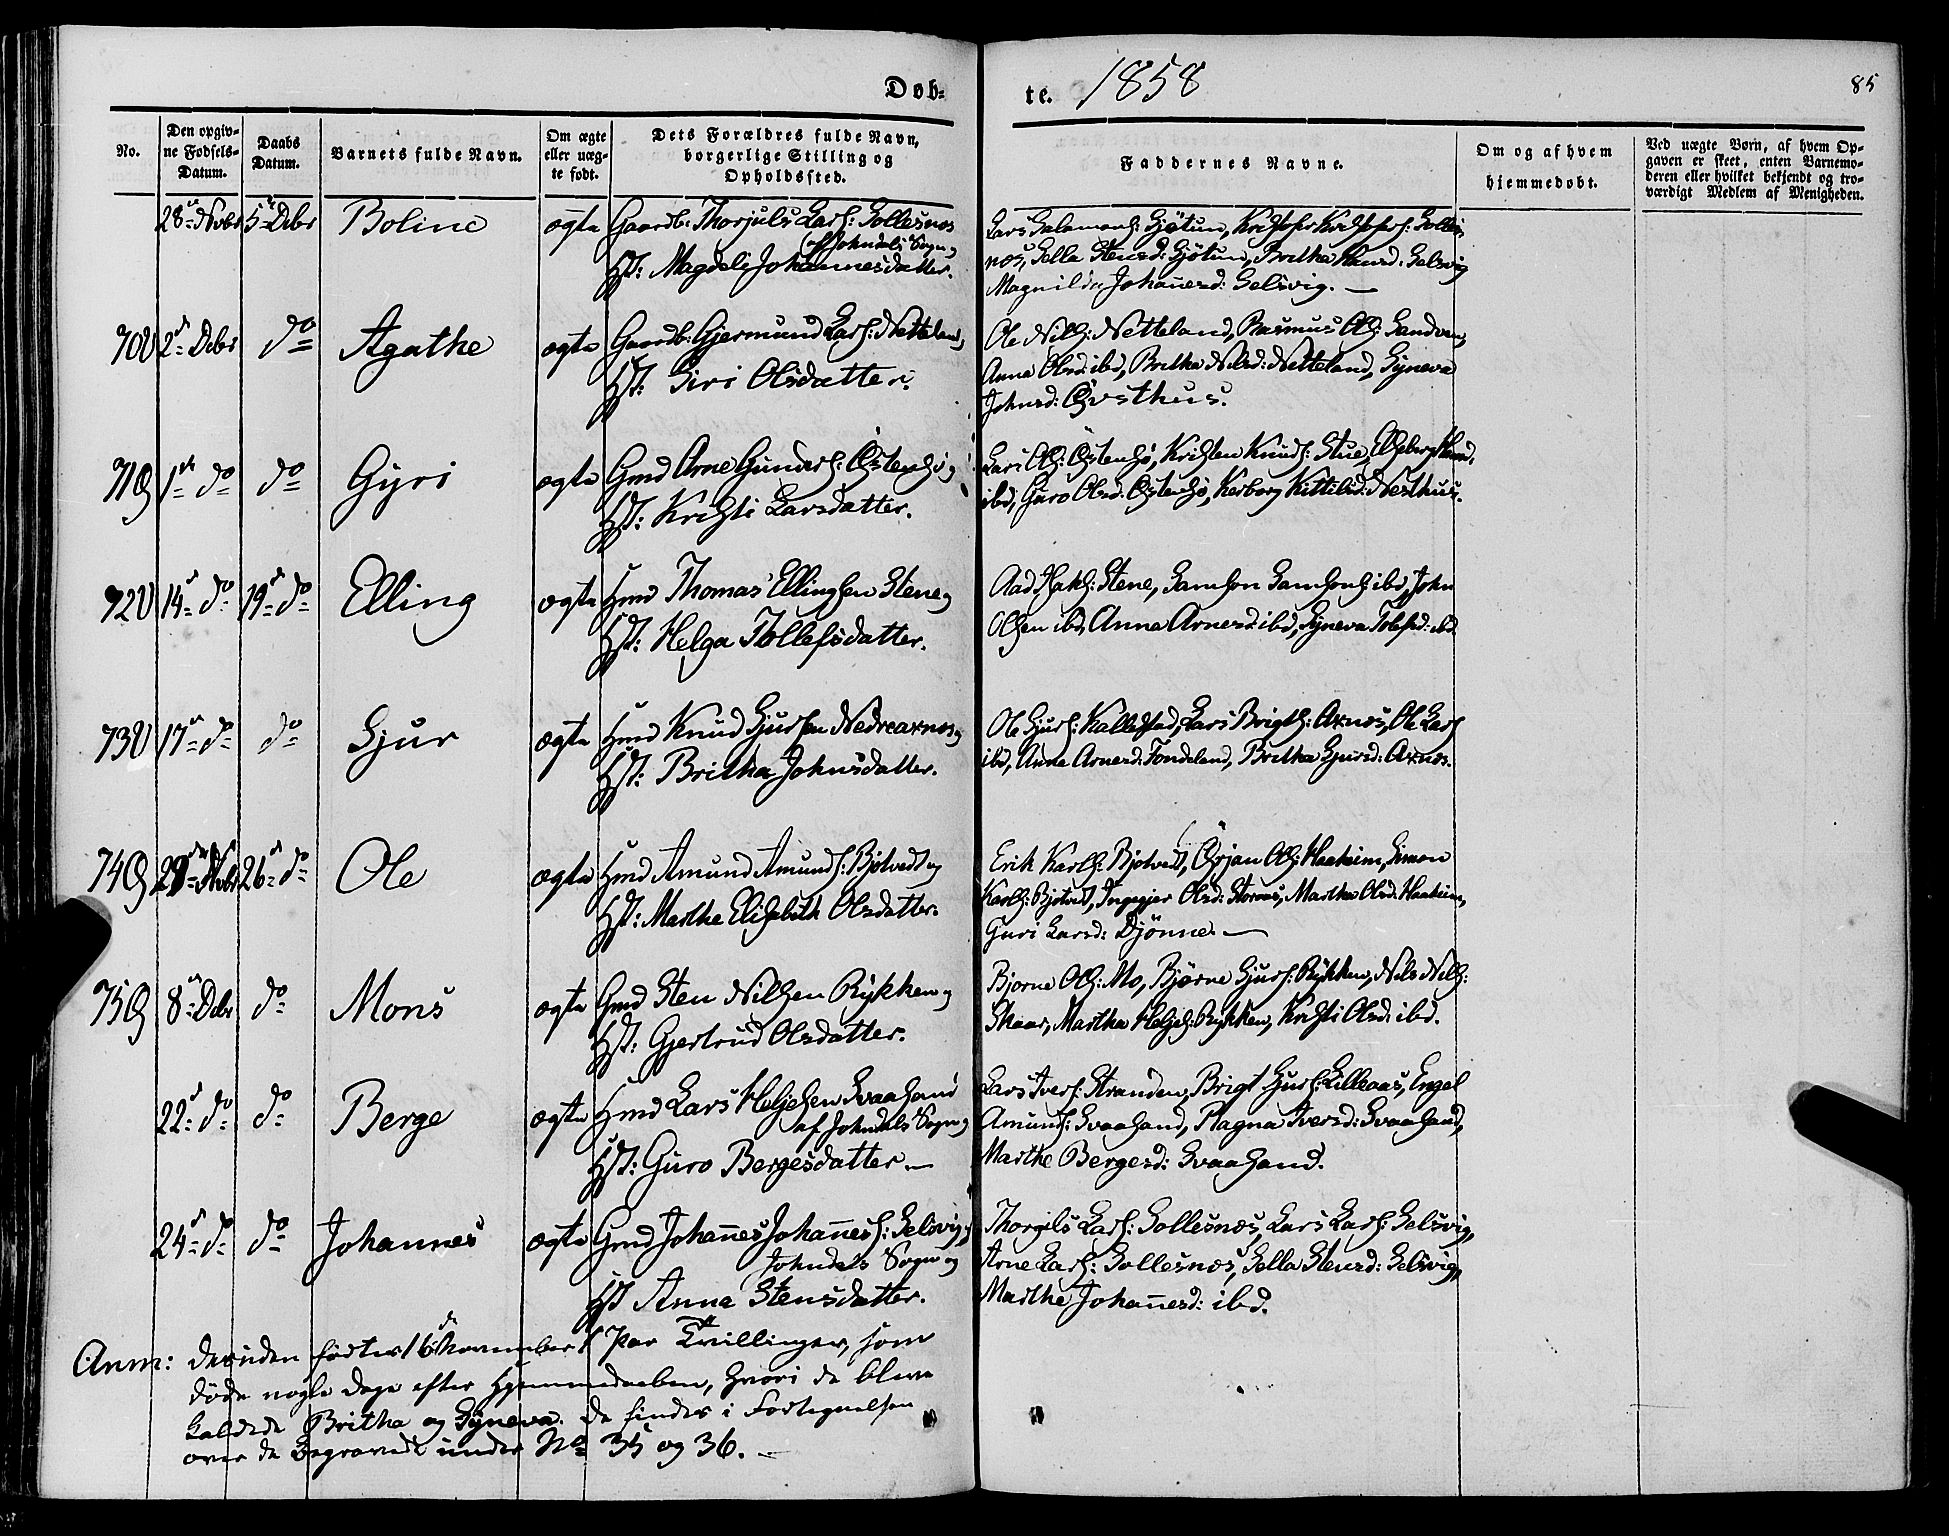 Døb-
te. 1858
85
No.
Den opgiv-
ne Fødsels-
Datum.
Daabs
Datum.
Barnets fulde Navn.
Om ægte
eller uæg-
te født.
Dets Forældres fulde Navn,
borgerlige Stilling og
Opholdssted.
Faddernes Navne.
Om og af hvem
hjemmedøbt.
Ved uægte Børn, af hvem Op-
gaven er skeet, enten Barnemo-
deren eller hvilket bekjendt og tro-
værdigt Medlem af Menigheden.
28de Novbr 5te Debr Boline ægte Gaardb: Thorjuls Larss: Sollesnæs
af Johndals Sogn og
Hst: Magdeli Johannesdatter.
Lars Salamons: Sjøtun, Kristofer Kristofers: Solles-
næs, Sella Stensd: Sjøtun, Britha Hansd: Selsvig
Magnilda Johannesd: Selsvig. —
70 V 2den Debr do Agathe ægte Gaardb: Gjermund Larss: Netteland,
Hst: Siri Olsdatter.
Ole Nilss: Netteland, Rasmus Ols: Sandven,
Anna Olsd: ibd, Britha Nilsd: Netteland, Syneva
Johnsd: Øvsthus.
71 Ø 1ste do do Gyri ægte Gmd Arne Gunders: Østensø og
Hst: Kristi Larsdatter.
Lars Ols: Østensø, Kristen Knuds: Stue,
ibd, Guro Olsd: Østensø, Kerborg Kittilsd: Nesthus.
72 V 14de do 19de do Elling ægte Hmd Thomas Ellingsen Stene og
Hst: Helga Tollefsdatter.
Aad Haks: Stene, Samson Samsons: ibd, John
Olsen ibd, Anna Arnesd: ibd, Syneva Tolefsd: ibd.
73 V 17de do do Sjur ægte Hmd Knud Sjursen Nedreaxnæs og
Hst: Britha Johnsdatter.
Ole Sjurs: Kallestad, Lars Brigts: Axnæs, Ole Larss:
ibd, Anna Arnesd: Tondeland, Britha Sjursd: Axnæs.
74 Ø 29de Novbr 26de do Ole ægte Hmd Amund Amunds: Bjotvedt og
Hst: Marthe Elisabeth Olsdatter.
Erik Karls: Bjotvedt, Ørjan Ols: Haaheim, Simon
Karls: Bjotvedt, Ingegjer Olsd: Storaas, Martha Olsd: Haaheim,
Guri Larsd: Djønne. —
75 Ø 8de Debr do Mons ægte Gmd Sten Nilsen Rykken og
Hst: Gjertrud Olsdatter.
Bjorne Ols: Mo, Bjørne Sjurs: Rykken, Nils Nils:
Skaar, Martha Heljes: Rykken, Kristi Olsd: ibd.
22de do do Berge ægte Hmd Lars Heljesen Svaasand
af Johndals Sogn og
Hst: Guro Bergesdatter. —
Lars Ivers: Stranden, Brigt Sjurs: Lilleaas, Engel
Amunds: Svaasand, Ragna Iversd: Svaasand,
Marthe Bergesd: Svaasand.
24de do do Johannes ægte Gmd Johannes Johanness: Selsvig,
Johndals Sogn og
Hst Anna Stensdatter.
Thorgils Larss: Sollesnæs, Lars Larss: Selsvig,
Arne Larss: Sollesnæs, Sella Stensd: Selsvig,
Marthe Johannesd: ibd.
Anm: desuden fødtes 16de November 1 Par Tvillinger, som
døde nogle Dage efter Hjemmedaaben, hvori de bleve
kaldede Britha og Syneva. De findes i Fortegnelsen
over de Begravede under No 35 og 36. —